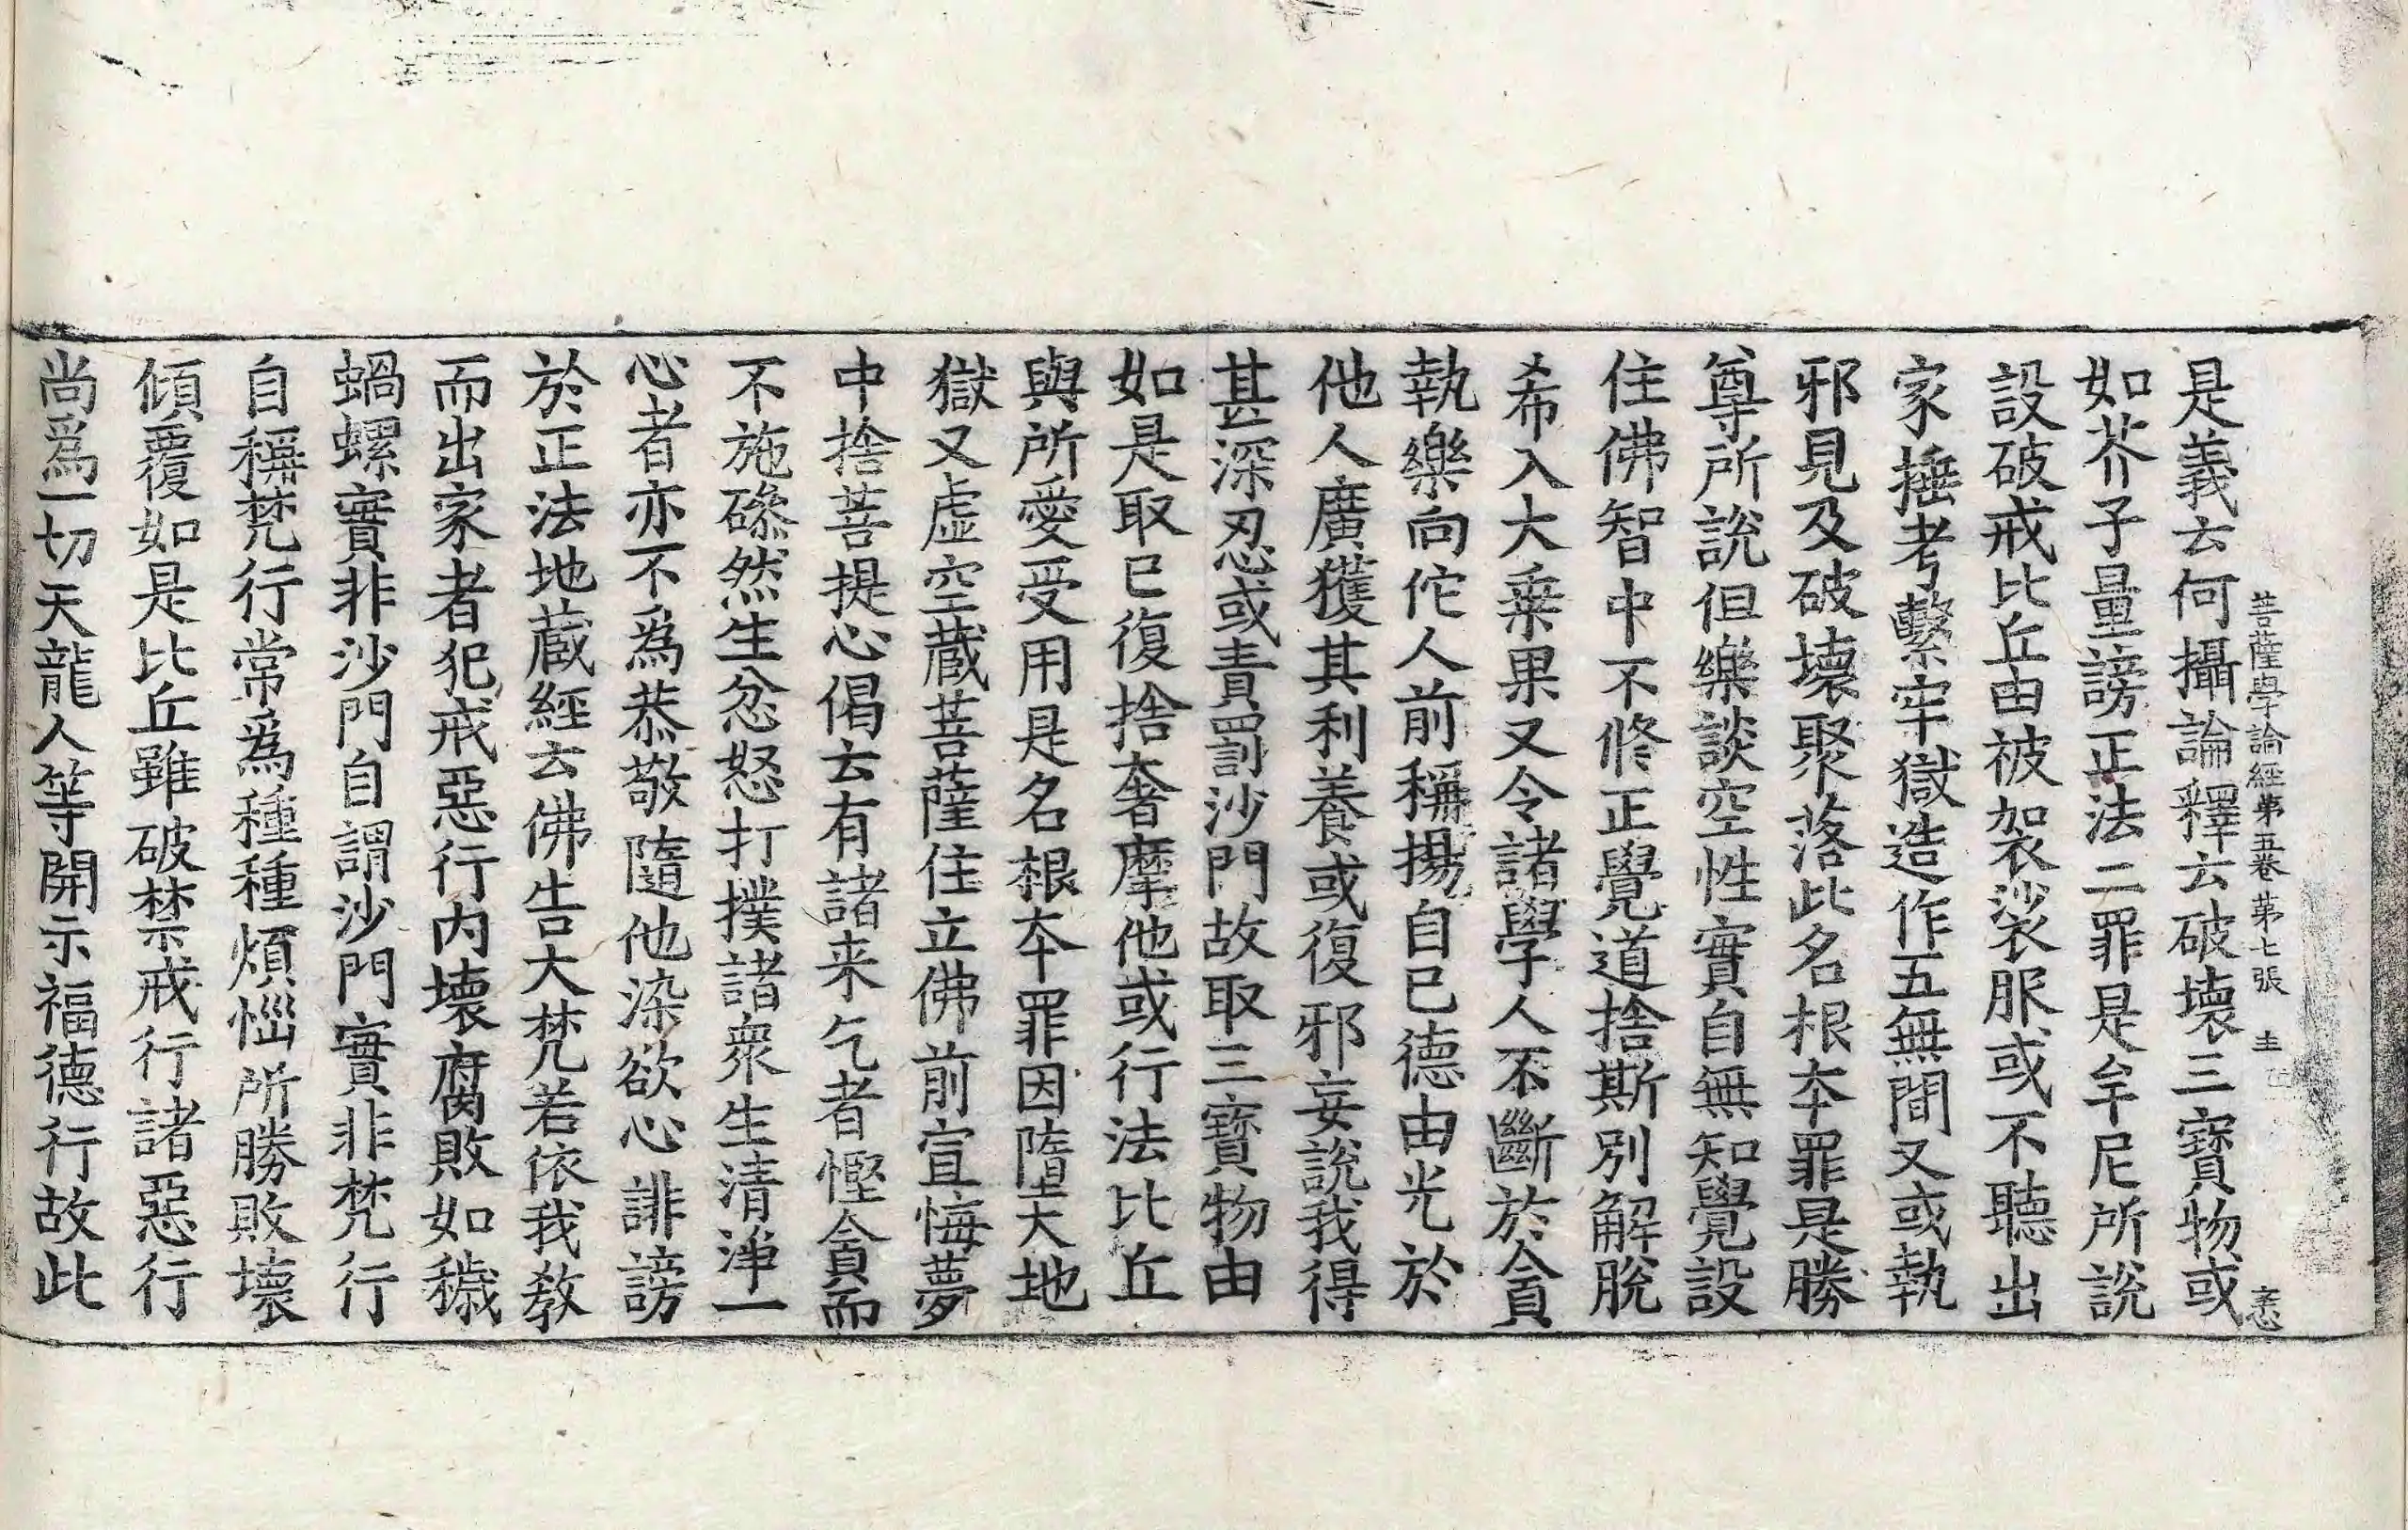 菩薩學論經第五卷 第七張 圭 恙
是義云何攝論釋云破壞三寶物或
如芥子量謗正法二罪是牟尼所說
設破戒比丘由被袈裟服或不聽出
家捶考繫牢獄造作五無間又或執
邪見及破壞聚落此名根夲罪是勝
尊所說但樂談空性實自無知覺設
住佛智中不修正覺道捨斯別解脫
希入大乗果又令諸學人不斷於貪
執樂向佗人前稱揚自巳德由光於
他人廣獲其利養或復邪妄說我得
甚深忍或責罰沙門故取三寶物由
如是取巳復捨奢摩他或行法比丘
與所愛受用是名根夲罪因墮大地
獄又虛空蔵菩薩住立佛前宣悔夢
中捨菩提心偈云有諸来乞者慳貪而
不施磣然生忿怒打撲諸衆生清淨一
心者亦不爲恭敬隨他染欲心誹謗
於正法地蔵經云佛告大梵若依我教
而出家者犯戒惡行内壞腐敗如穢
蝸螺實非沙門自謂沙門實非梵行
自稱梵行常爲種種煩惱所勝敗壞
傾覆如是比丘雖破禁戒行諸惡行
尚爲一切天龍人等開示福德行故此